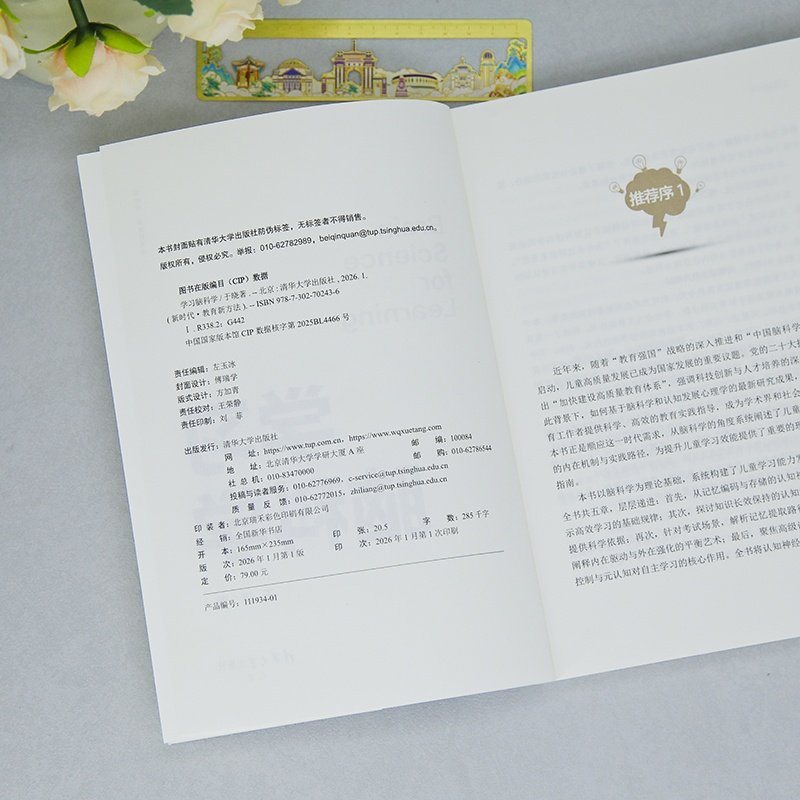 本书封面贴有清华大学出版社防伪标签，无标签者不得销售。
版权所有，侵权必究。举报：010-62782989，beiqinquan@tup.tsinghua.edu.cn。
图书在版编目（CIP）数据
学习脑科学 / 于晓著. -- 北京 : 清华大学出版社, 2026. 1.
(新时代·教育新方法). -- ISBN 978-7-302-70243-6
Ⅰ. R338.2；G442
中国国家版本馆 CIP 数据核字第 2025BL4466 号
责任编辑：左玉冰
封面设计：傅瑞学
版式设计：方加青
责任校对：王荣静
责任印制：刘 菲
出版发行：清华大学出版社
网 址：https://www.tup.com.cn，https://www.wqxuetang.com
地 址：北京清华大学学研大厦 A 座 邮 编：100084
社 总 机：010-83470000 邮 购：010-62786544
投稿与读者服务：010-62776969，c-service@tup.tsinghua.edu.cn
质 量 反 馈：010-62772015，zhiliang@tup.tsinghua.edu.cn
印 装 者：北京瑞禾彩色印刷有限公司
经 销：全国新华书店
开 本：165mm×235mm 印 张：20.5 字 数：285 千字
版 次：2026 年 1 月第 1 版 印 次：2026 年 1 月第 1 次印刷
定 价：79.00 元
产品编号：111934-01
推荐序 1
近年来，随着“教育强国”战略的深入推进和“中国脑科学
启动，儿童高质量发展已成为国家发展的重要议题。党的二十大报
出“加快建设高质量教育体系”，强调科技创新与人才培养的深
此背景下，如何基于脑科学和认知发展心理学的最新研究成果，
育工作者提供科学、高效的教育实践指导，成为学术界和社会
本书正是顺应这一时代需求，从脑科学的角度系统阐述了儿童
的内在机制与实践路径，为提升儿童学习效能提供了重要的理
指南。
本书以脑科学为理论基础，系统构建了儿童学习能力发
全书共五章，层层递进：首先，从记忆编码与存储的认知神
示高效学习的基础规律；其次，探讨知识长效保持的认知
提供科学依据；再次，针对考试场景，解析记忆提取路
阐释内在驱动与外在强化的平衡艺术；最后，聚焦高级
控制与元认知对自主学习的核心作用。全书将认知神经